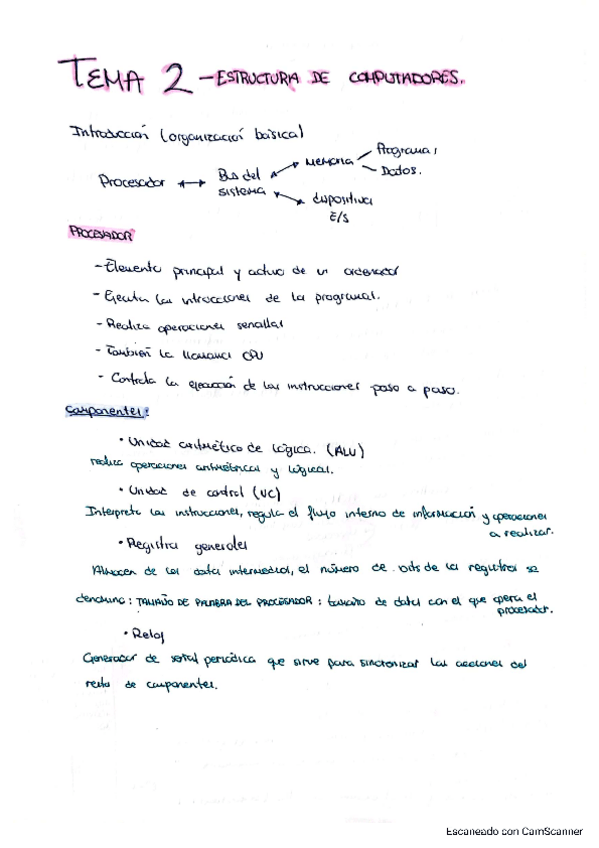 TEMA 2 - ESTRUCTURA DE COMPUTADORES.
Introducción (organización básica)
Procesador ↔ Bus del sistema
Memoria
Programas
Datos.
dispositivos E/S
PROCESADOR
- Elemento principal y activo de un ordenador
- Ejecuta las instrucciones de los programas.
- Realiza operaciones sencillas
- También la llamamos CPU
- Controla la ejecución de las instrucciones paso a paso.
Componentes:
• Unidad aritmético de lógica. (ALU)
realiza operaciones aritméticas y lógicas.
• Unidad de control (UC)
Interpreta las instrucciones, regula el flujo interno de información y operaciones
a realizar.
• Registros generales
Almacen de los datos intermedios, el número de bits de los registros se
denomina: TAMAÑO DE PALABRA DEL PROCESADOR: tamaño de datos con el que opera el
procesador.
• Reloj
Generador de señal periódica que sirve para sincronizar las acciones del
resto de componentes.
Escaneado con CamScanner